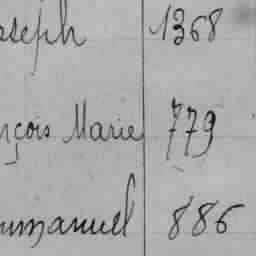 oseph 1368
nçois Marie 779
mmanuel 886